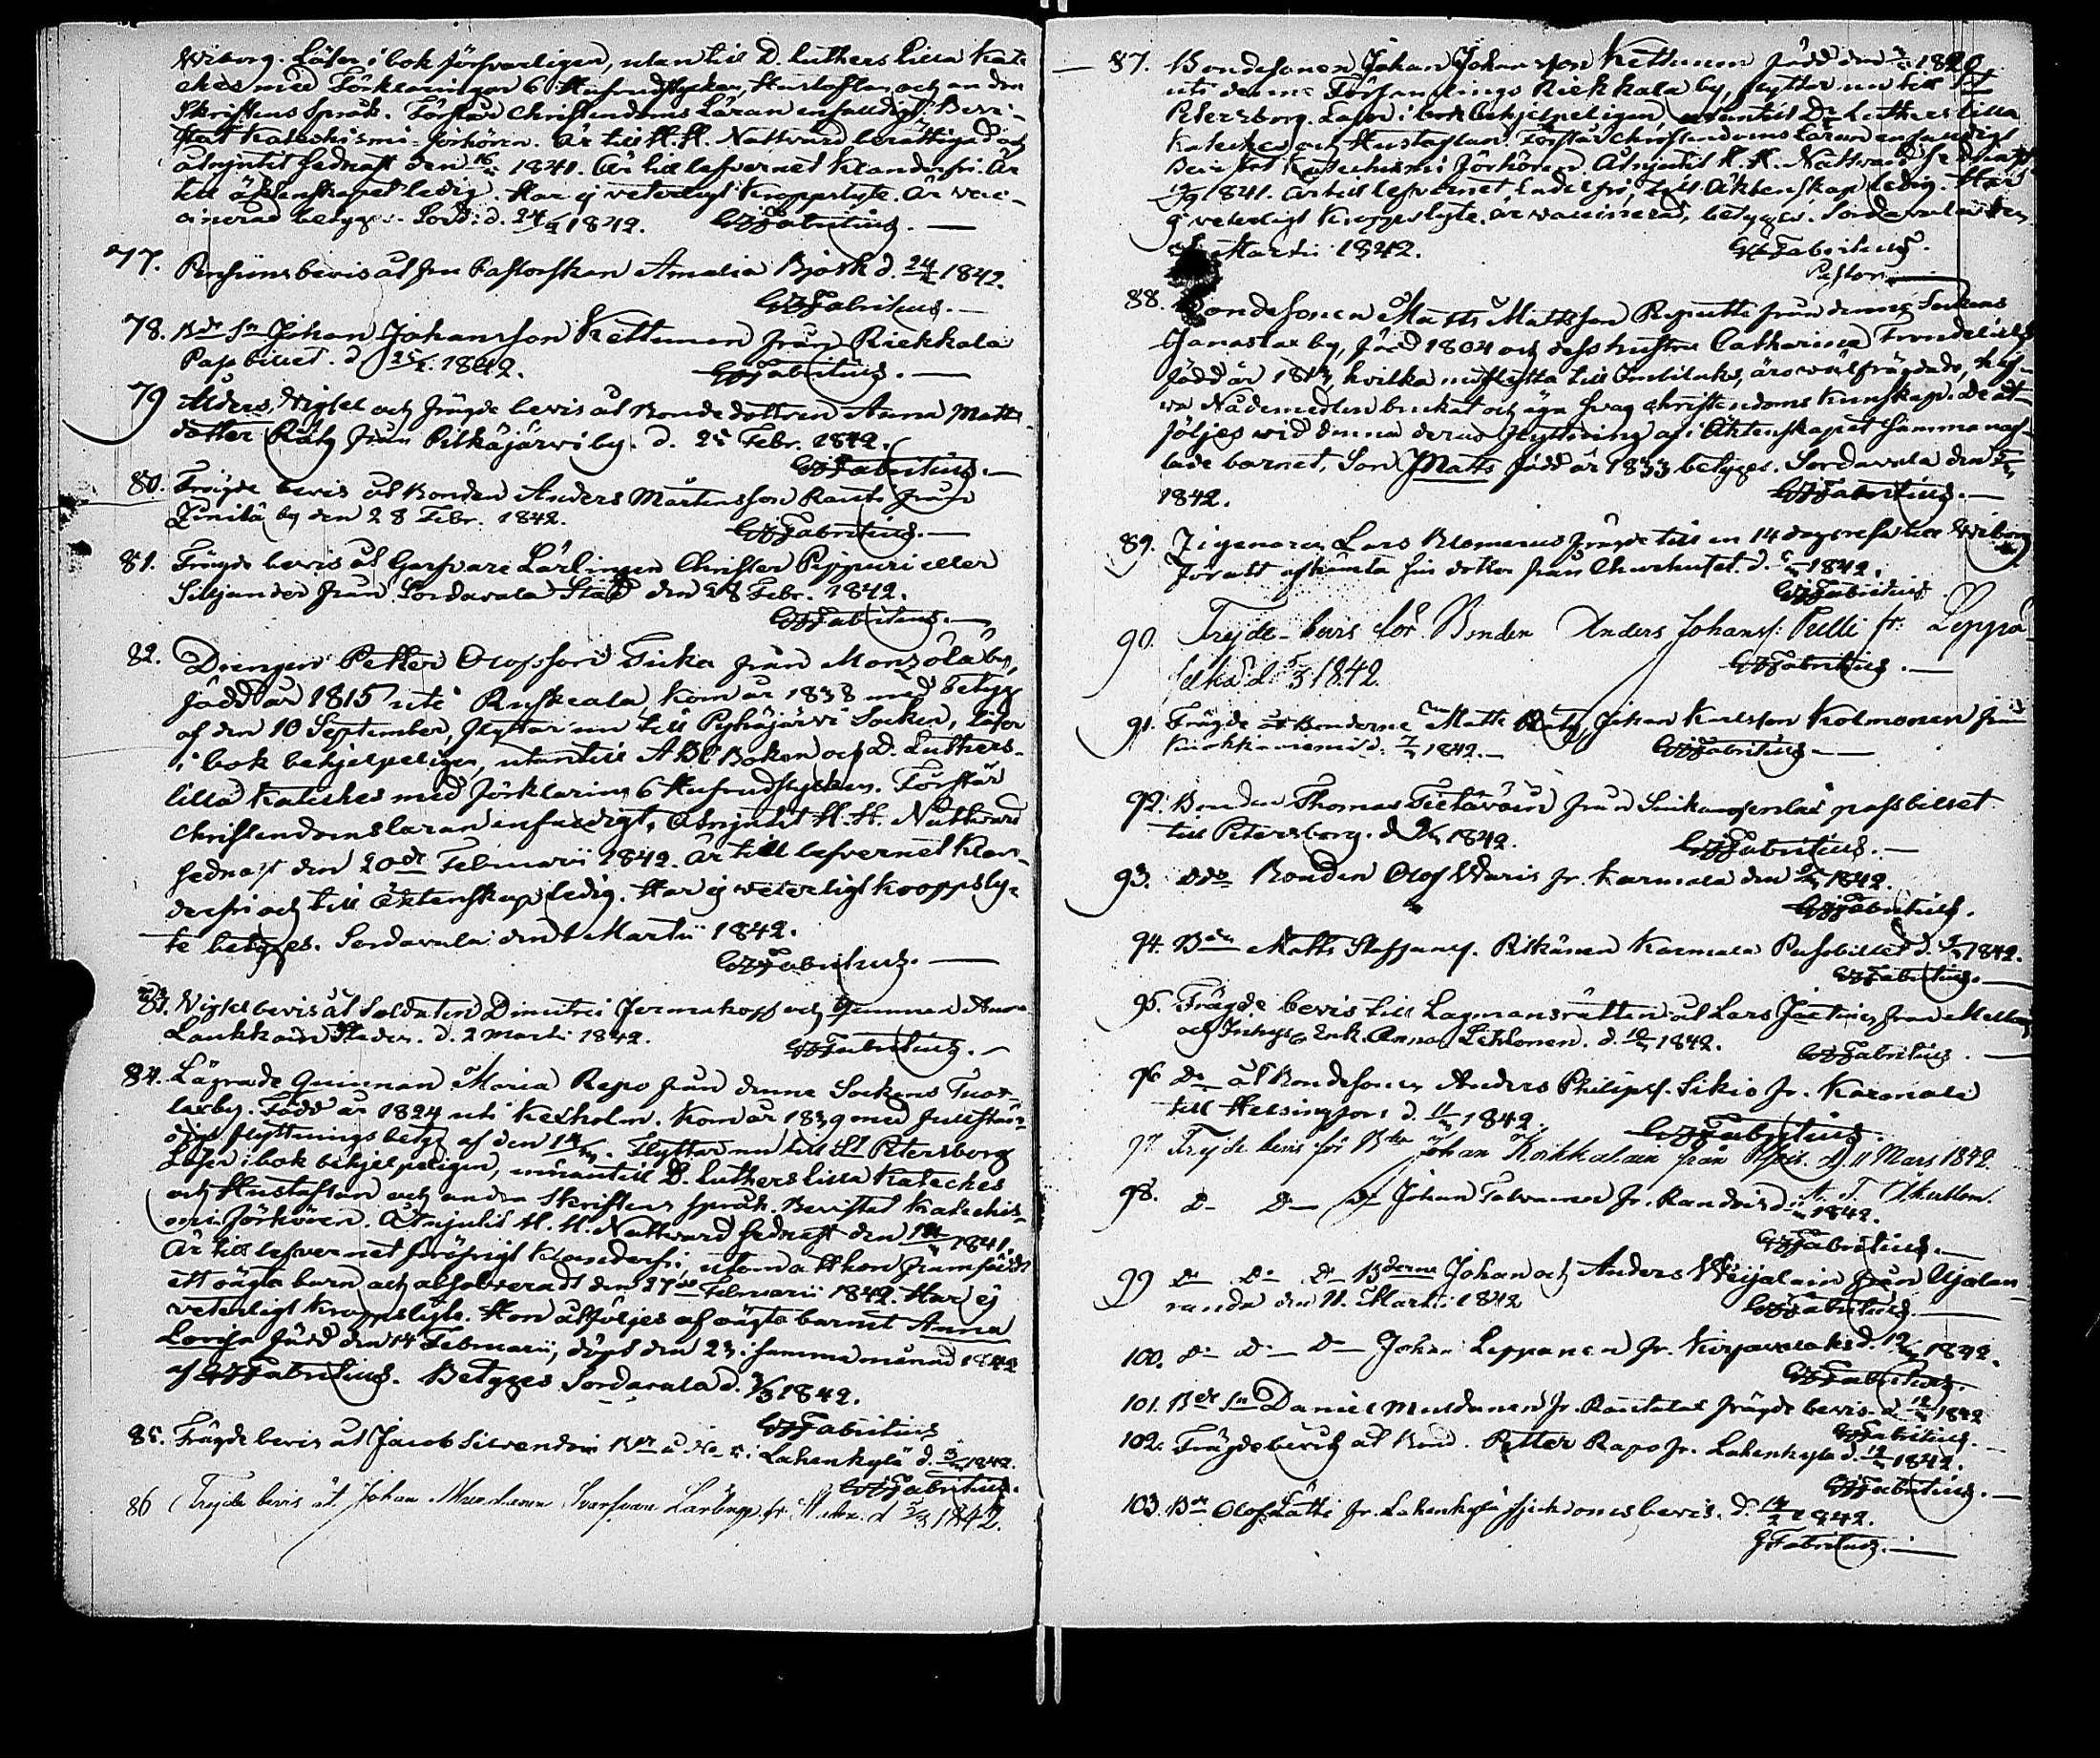 Wiborg. Läser i bok försvarligen, utantill D. Luthers Lilla Kate
ches med Förklaringar 6 Hufvudstycken, Hustaflan och andra
Skriftens Språk. Förstår Christendoms Läran enfaldigt. Bevi-
stat Katechismi-förhören. Är till H. H. Nattvard berättigad och
åtnjutit sednast den 1841. Är till lefvernet klanderfri. Är
till äktenskapet ledig. Har ej veterligt Kroppslyte. Är vac-
cinerad betyges. Sord: d. 24/2 1842. Fabritius.
77. Pensions bevis åt fru Pastorskan Amalia Björk d. 24/2 1842.
Fabritius.
78. Bde Sn Johan Johansson Kettunen från Riekkala
Pass billet. d. 25/2 1842. Fabritius.
79 Ålders, Vigsel och frägde bevis åt Bonde dottren Anna Matts
dotter Räty från Pitkäjärvi by. d. 25 Febr. 1842.
Fabritius.
80. Frägde bevis åt Bonden Anders Mårtensson Rautio från
by den 28 Febr. 1842. Fabritius.
81. Frägde bevis åt Garfvare Lärlingen Christer Pippuri eller
Siljander från Sordavala Stad den 28 Febr. 1842.
Fabritius.
82. Drengen Petter Olofsson Tuka från Monzola by,
född år 1815 uti Ruskeala, kom år 1838 med betyg
af den 10 September, flyttar nu till Pyhäjärvi Socken, läser
i bok behjelpeligen, utantill ABC Boken och D. Luthers
lilla Kateches med förklaring 6 Hufvudstycken. Förstår
christendomsläran enfaldigt, åtnjutit H. H. Nattvard
sednast den 20de Februarii 1842. Är till lefvernet klan-
derfri och till Äktenskap ledig. Har ej veterligt kroppsly-
te betyges. Sordavala den 1 Martii 1842.
Fabritius.
83. Vigsel bevis åt Soldaten Dimitri Jermakoff och qvinnan Anna
Laukkain Staden. d. 2 Marti 1842. Fabritius.
84. Lägrade Qvinnan Maria Repo från denne Sockens
by. Född år 1824 uti Kexholm. Kom år 1839 med fullstän-
digt flyttningsbetyg af den Flyttar nu till St Petersborg
Läser i bok behjelpeligen, utantill D. Luthers lilla Kateches
och Hustaflan och andra Skriftens Språk. Bevistat Katechis-
mi-förhören. Åtnjutit H. H. Nattvard sednast den 1841.
Är till lefvernet klanderfri, utom att hon framfödt
ett oägta barn och absolverad den 27de Februarii 1842. Har ej
veterligt kroppslyte. Hon åtföljes af oägta barnet Anna
Lovisa född den 14 Februarii, döpt den 23 i samma månad 1842
af Fabritius. Betyges Sordavala d. 3/3 1842.
Fabritius
85. Frägde bevis åt Jacob Silvendoin Lahenkylä d. 3/3 1842.
Fabritius.
86 Frejde bevis åt Johan Lärling fr. Staden. d 5/3 1842.
87. Bondesonen Johan Johansson Kettunen född den 1820
uti denne Församlings Riekkala by, flyttar nu till St
Petersborg. Läser i bok behjelpeligen, utantill Dr Luthers lilla
Kateches och Hustaflan. Förstår Christendoms läran enfaldigt
Bevistat Katechismi Förhören. Åtnjutit H. H. Nattvard sednast
19/9 1841. Är till lefvernet ladelfri, till Äktenskap ledig. Har
ej veterligt kroppslyte, är vaccinerad, betyges. Sordavala den
Martii 1842. Fabritius.
Pastor
88. Bondesonen Matts Mattsson Reputti från denne Sockens
by, född 1804 och dess hustru Catharina
född år 1813, hvilka nu flytta till Imbilaks, äro välfrägdade, haf-
va Nådemedlen brukat och äga svag christendoms kunskap. De åt-
följes vid denna deras flyttning af i Äktenskapet sammanaf-
lade barnet, Son Matts född år 1833 betyges. Sordavala den
1842. Fabritius.
89. Zigenaren Lars Blomerus frägde till en 14 dags resa till Wiborg
för att afhämta sin dotter från Churhuset. d. 1842.
Fabritius
90. Frejde-bevis för Bonden Anders Johanss: Pulli fr. Leppä-
selkä d. 5/3 1842 Fabritius.
91. Frägde åt Bönderne Matts Räty, Johan Karlsson Kolmonen från
d. 7/3 1842. Fabritius
92. Bonden Thomas Tietäväin från passbillet
till Petersborg. d. 9/3 1842. Fabritius.
93. Ddo Bonden Olof Waris fr. Karmala den 9/3 1842.
Fabritius.
94. Bden Matts Staffansf. Pitkänen Karmala Passbillet d. 1842.
Fabritius.
95. Frägde bevis till Lagmansrätten åt Lars från
och Inhyses Enk. Anna Lehkonen. d. 10/3 1842. Fabritius.
96 Do åt Bondesonen Anders Philipsf. Sikiö fr. Karmala
till Helsingfors d 11/3 1842. Fabritius.
97 Frejde bevis för Bden Johan Kokkalain från d. 11 Mars 1842.
98. D- D- Johan Talvanen fr. d. 1842.
Fabritius.
99 Do Do Do Bderne Johan och Anders Weijalain från Ujalan-
randa den 11. Marti 1842 Fabritius.
100. Do Do Do Johan Leppänen fr. Kirjavalaks d. 12/3 1842.
Fabritius.
101. Bde Sn Daniel Muldanen fr. Rautalax frägde bevis d 12/3 1842
Fabritius.
102. Frägdebevis åt Bond. Petter Rapo fr. Lahenkylä d. 12/3 1842.
Fabritius.
103. Bde Olof Lätti fr. Lahenkylä bevis. d. 1842.
Fabritius.